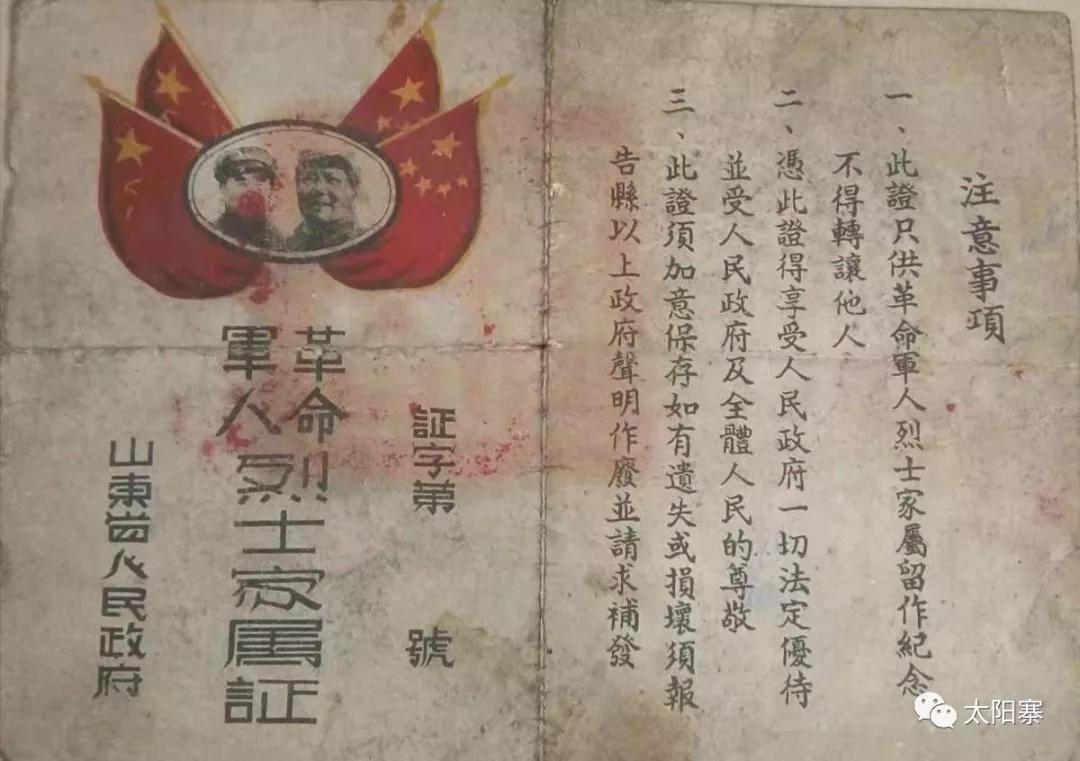 注意事項
一、此證只供革命軍人烈士家屬留作紀念
不得轉讓他人
二、憑此證得享受人民政府一切法定優待
並受人民政府及全體人民的尊敬
三、此證須加意保存如有遺失或損壞須報
告縣以上政府聲明作廢並請求補發
証字第 號
革命
軍人
烈士家属証
山東省人民政府
太阳寨